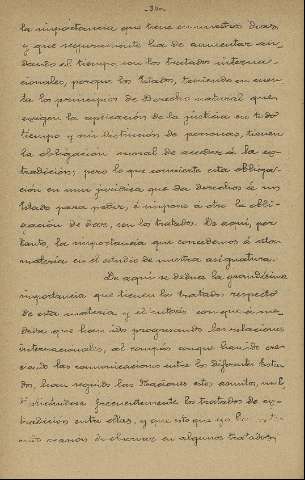 la importancia que tiene en nuestros días,
y que seguramente ha de aumentar an-
dando el tiempo, son los tratados interna-
cionales, porque los Estados, teniendo en cuen-
ta los principios de Derecho natural que
exigen la aplicación de la justicia en todo
tiempo y sin distinción de personas, tienen
la obligación moral de acceder á la ex-
tradición; pero lo que convierte esta obliga-
ción en una jurídica que da derechos á un
Estado para pedir, é impone á otro la obli-
gación de dar, son los tratados. De aquí, por
tanto, la importancia que concedemos á esta
materia en el estudio de nuestra asignatura.
De aquí se deduce la grandísima
importancia que tienen los tratados respecto
de esta materia y el interés con que á me-
dida que han ido progresando las relaciones
internacionales, al compás conque han ido cre-
ciendo las comunicaciones entre los diferentes Esta-
dos, han seguido las Naciones este asunto,
frecuentemente los tratados de ex-
tradición entre ellas, y que esto que
de observar en algunos tratados,